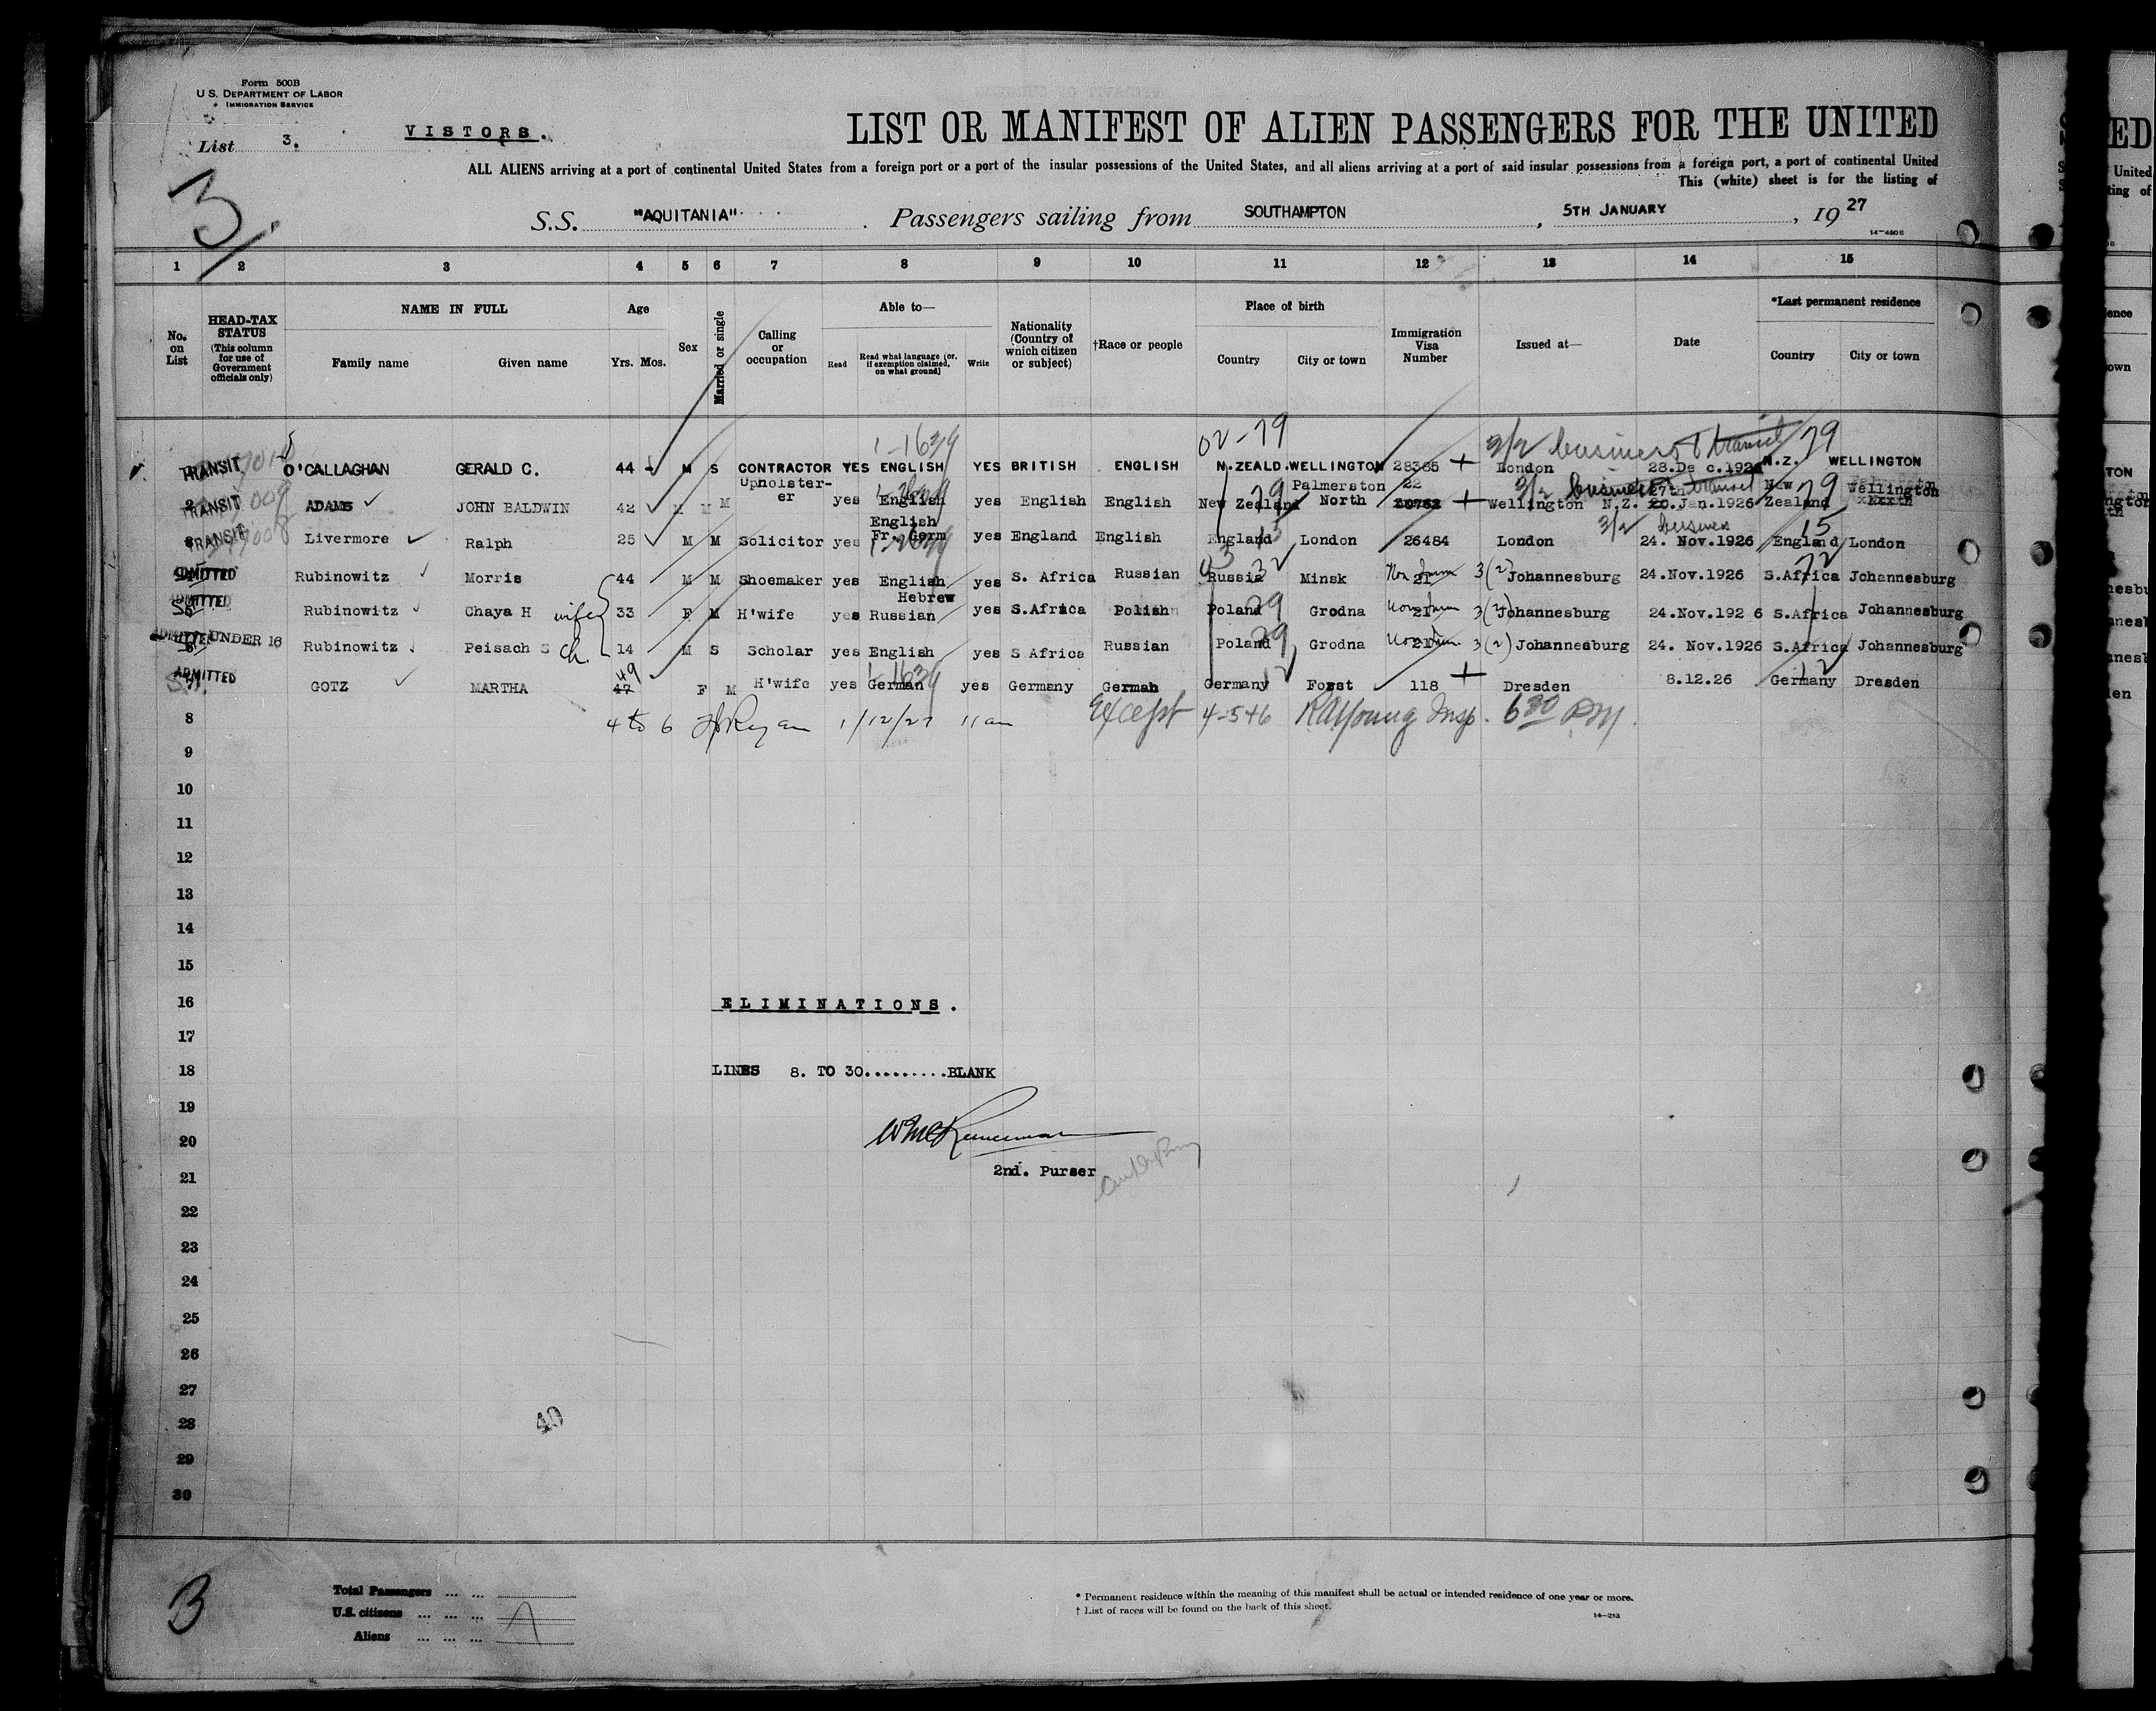 Form 500B
U.S. DEPARTMENT OF LABOR
IMMIGRATION SERVICE
List 3.
VISTORS.
LIST OR MANIFEST OF ALIEN PASSENGERS FOR THE UNITED
ALL ALIENS arriving at a port of continental United States from a foreign port or a port of the insular possessions of the United States, and all aliens arriving at a port of said insular possessions from a foreign port, a port of continental United
This (white) sheet is for the listing of
3/
S.S. "AQUITANIA" Passengers sailing from SOUTHAMPTON, 5TH JANUARY, 1927
14-480 B
1 2 3 4 5 6 7 8 9 10 11 12 13 14 15
No. on List
HEAD-TAX STATUS (This column for use of Government officials only)
NAME IN FULL
Family name Given name
Age
Yrs. Mos.
Sex
Married or single
Calling or occupation
Able to—
Read Read what language (or, if exemption claimed, on what ground) Write
Nationality (Country of which citizen or subject)
†Race or people
Place of birth
Country City or town
Immigration Visa Number
Issued at—
Date
*Last permanent residence
Country City or town
1-1639 02-79 3/2 business & transit 79
TRANSIT O'CALLAGHAN GERALD C. 44 M S CONTRACTOR YES ENGLISH YES BRITISH ENGLISH N.ZEALD. WELLINGTON 28365 + London 28.Dec.1926 N.Z. WELLINGTON
2 TRANSIT ADAMS JOHN BALDWIN 42 M M Upholster-er yes English yes English English New Zealand Palmerston North 22 + Wellington N.Z. 27th Jan.1926 New Zealand Wellington
3/2 business transit 79
TRANSIT Livermore Ralph 25 M M Solicitor yes English Fr. Germ yes England English England London 26484 London 24. Nov.1926 England London
3/2 business 15
ADMITTED Rubinowitz Morris 44 M M Shoemaker yes English Hebrew yes S. Africa Russian Russia Minsk 21 3(2) Johannesburg 24.Nov.1926 S.Africa Johannesburg
ADMITTED Rubinowitz Chaya H wife 33 F M H'wife yes Russian yes S.Africa Polish Poland Grodna 21 3(2) Johannesburg 24.Nov.192 6 S.Africa Johannesburg
ADMITTED UNDER 16 Rubinowitz Peisach S Ch. 14 M S Scholar yes English yes S Africa Russian Poland Grodna 21 3(2) Johannesburg 24. Nov.1926 S.Africa Johannesburg
ADMITTED GOTZ MARTHA 49 47 F M H'wife yes German yes Germany German Germany Forst 118 + Dresden 8.12.26 Germany Dresden
8 4 to 6 Ryan 1/12/27 11 am Except 4-5+6 RA Young Insp. 6 30 PM.
9
10
11
12
13
14
15
16 ELIMINATIONS.
17
18 LINES 8. TO 30.........BLANK
19
20
21 2nd. Purser
22
23
24
25
26
27
28 40
29
30
3
Total Passengers ... ...
U.S. citizens ... ... ...
Aliens ... ... ...
7
* Permanent residence within the meaning of this manifest shall be actual or intended residence of one year or more.
† List of races will be found on the back of this sheet.
14-213